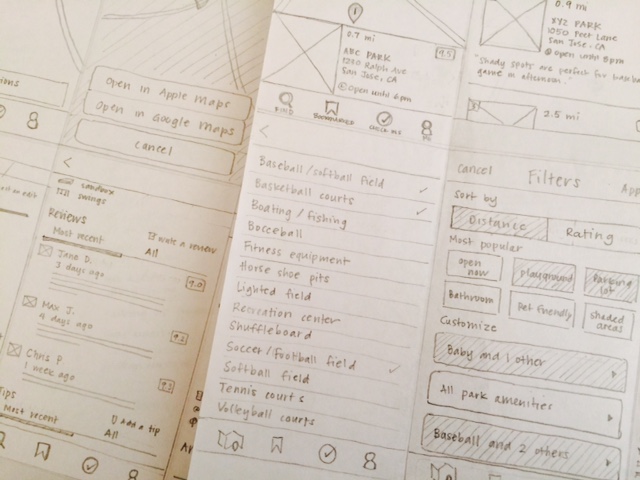 Open in Apple Maps
Open in Google Maps
Cancel
<
sandbox
Till swings
Reviews
write a review
Most recent
All
Jana D.
3 days ago
9.0
Max J.
4 days ago
9.2
Chris P
1 week ago
9.2
Tips
Add a tip
Most recent
All
0.7 mi
ABC PARK
9.5
1280 Ralph Ave
San Jose, CA
Open until 6pm
FIND
BOOKMARKS
CHECK INS
ME
<
Baseball/softball field
Basketball courts
Boating/fishing
Bocceball
Fitness equipment
Horse shoe pits
Lighted field
Recreation center
Shuffleboard
Soccer/football field
Softball field
Tennis courts
Volleyball courts
0.9 mi
XYZ PARK
1050 Feet Lane
San Jose, CA
open until 8pm
"Shady spots are perfect for
game in afternoon."
2.5 mi
Cancel
Filters
App
Sort by
Distance
Rating
Most popular
Open now
playground
Parking lot
Bathroom
Pet friendly
Shaded areas
Customize
Baby and 1 other
All park amenities
Baseball and 2 others